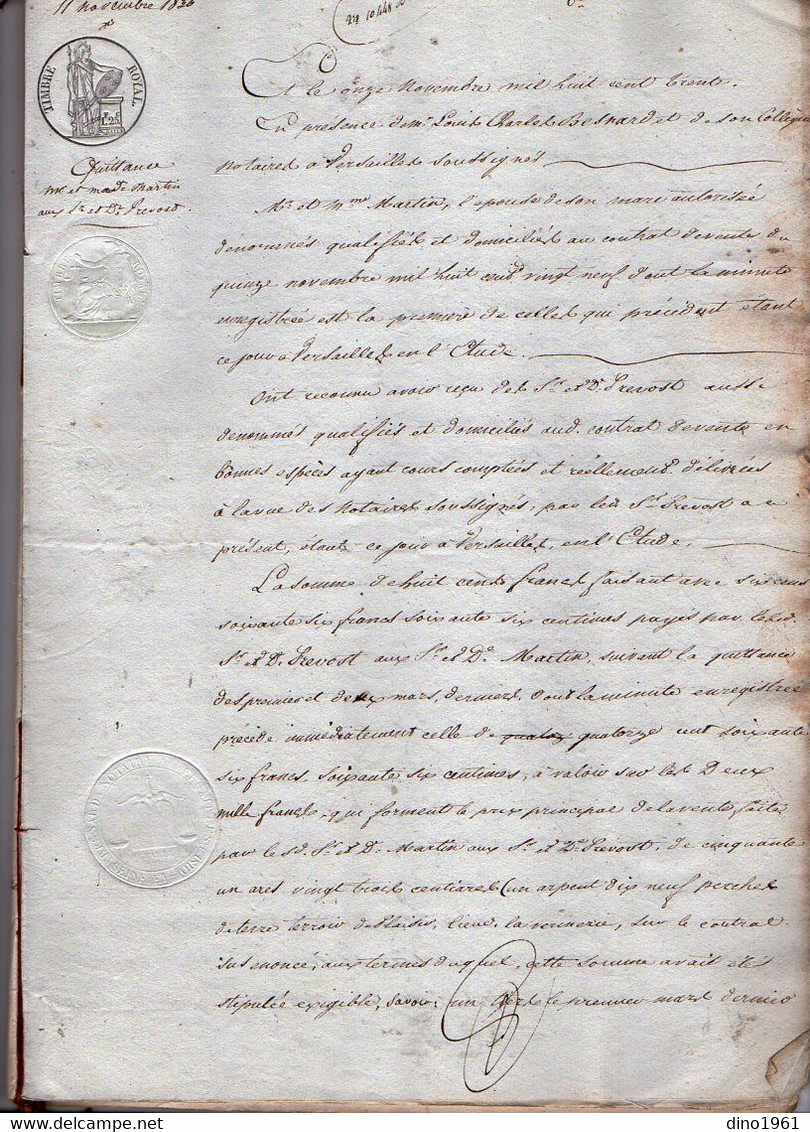 11 novembre 1830
TIMBRE ROYAL
Quittance
mr et made Martin
aux Sr et De Prevost.
Et le onze Novembre mil huit cent trente.
En présence de me Louis Charles Besnard et de son Collègue
notaires à Versailles soussignés
Mr. et Mme Martin, l'épouse de son mari autorisée
dénommés qualifiés et domiciliés au contrat de vente du
quinze novembre mil huit cent vingt neuf dont la minute
enregistrée est la première de celles qui précédent étant
ce jour à Versailles en l'Etude.
Ont reconnu avoir reçu des Sr. et De. Prevost aussi
dénommés qualifiés et domiciliés aud. contrat de vente en
bonnes espèces ayant cours comptées et réellement délivrées
à la vue des Notaires soussignés, par led. Sr. Prevost a ce
présent, étant ce jour à Versailles, en l'Etude.
La somme de huit cents francs faisant avec six cens
soixante six francs soixante six centimes payés par lesd.
Sr. et De. Prevost aux Sr. et De. Martin, suivant la quittance
des premier et deux mars, derniers, dont la minute enregistrée
précède immédiatement celle de quatorze cent soixante
six francs, soixante six centimes, à valoir sur les Deux
mille francs, qui forment le prix principal de la vente faite
par les d. Sr. et De. Martin aux Sr. et De. Prevost, de cinquante
un ares vingt trois centiares (un arpent dix neuf perches
de terre terroir de Plaisir, lieudt. la verinerie, sur le contrat
sus énoncé, aux termes duquel, cette somme avait été
stipulée exigible, savoir: un tiers le premier mars dernier
dino1961